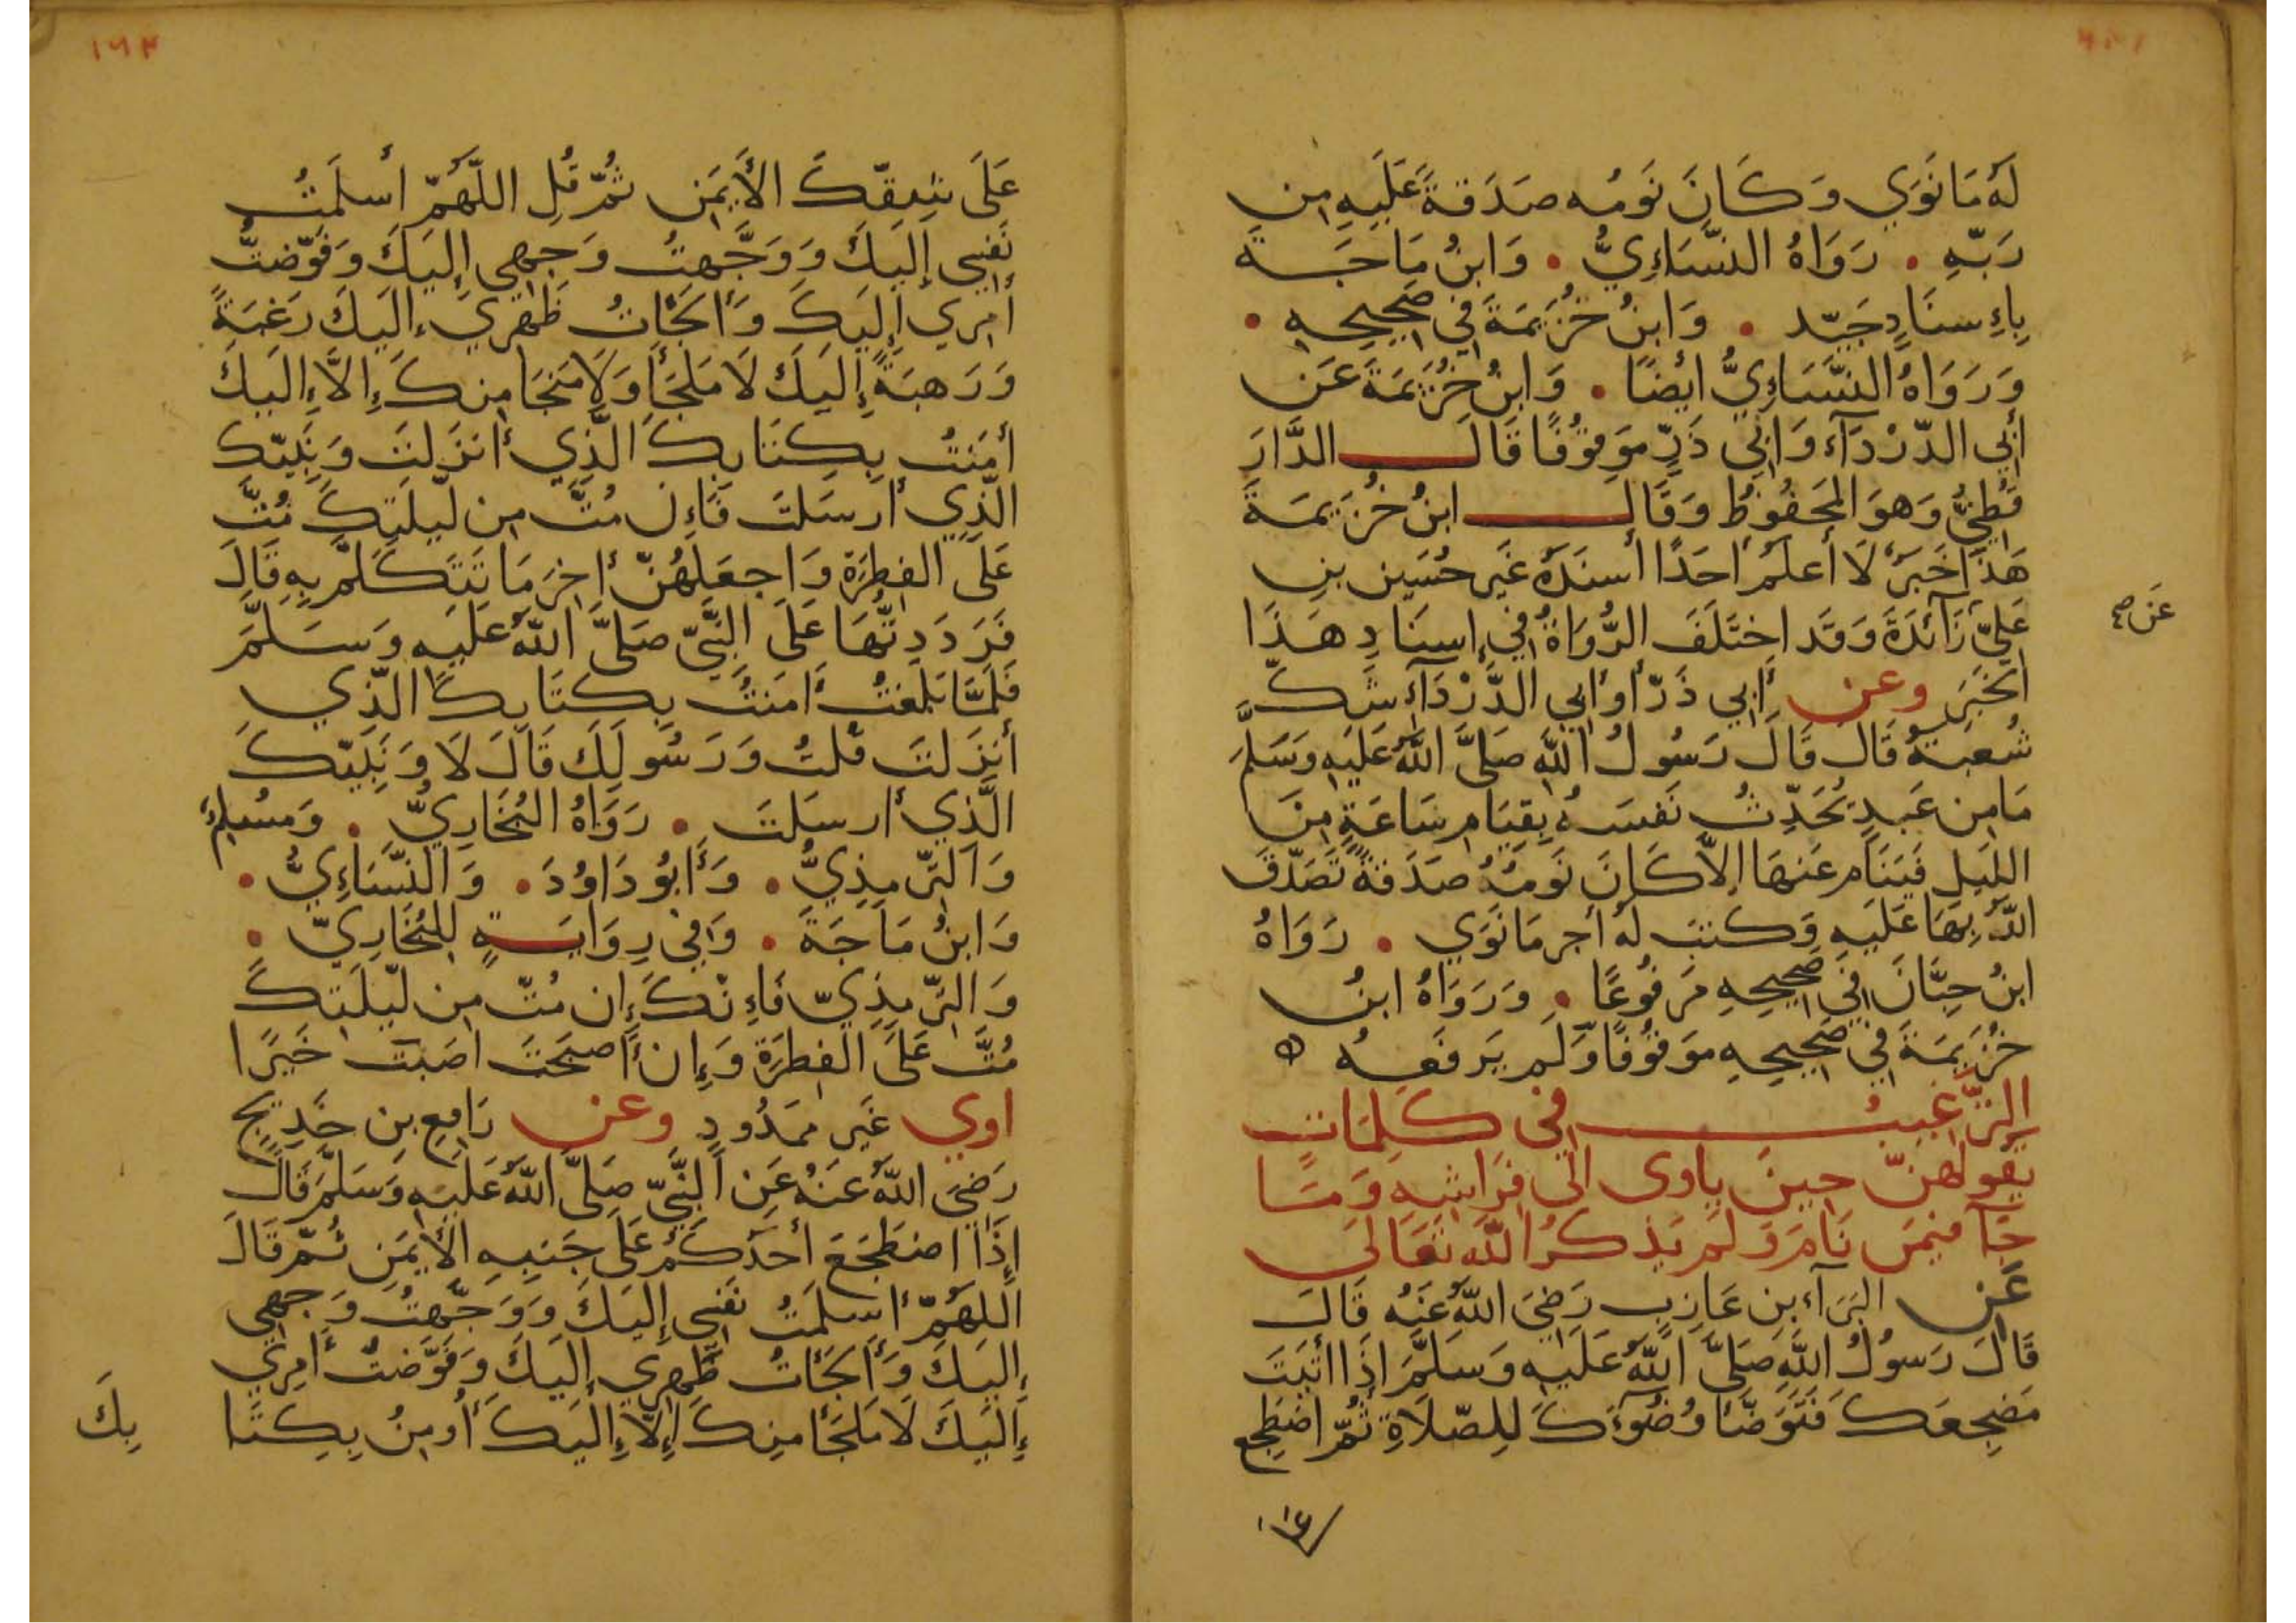 لَهُ مَا نَوَي وَكَانَ نَومُه صَدَقةً عَلَيهِ مِن
رَبّهِ . رَوَاهُ النسَّاءِيُّ . وَابنُ مَاجَة
بِإِسنَادٍ جَيّد . وَابنُ خُزَيمَةَ فِي صَحِيحِهِ .
وَرَوَاهُ النسَّاءِيُّ ايضًا . وَابنُ خُزَيمَةَ عَن
أَبِي الدّردَآء وَابِي ذَرٍّ مَوقُوفًا قَالَ الدَّارَ
قُطنِيُّ وَهوَ المَحفُوظُ وَقَالَ ابنُ خُزَيمَةَ
هَذَا خَبَرٌ لَا أَعلَمُ أَحَدًا أَسنَدَهُ غَير حُسَين بنِ
عَلِيّ زَآئدَةَ وَقَد اختَلَفَ الرُّوَاةُ فِي إِسنَادِ هَذَا
عَن صح
الخَبَرِ وعن أَبِي ذَرّ أَو أَبِي الدَّردَآءِ شَكَّ
شُعبَةُ قَالَ قَالَ رَسُولُ اللهِ صَلَّى اللهُ عَلَيهِ وَسَلَّمَ
مَا مِن عَبدٍ يُحَدِّثُ نَفسَهُ بِقِيَامِ سَاعَةٍ مِنَ
اللَيلِ فَيَنَام عَنهَا إِلاَّ كَانَ نَومُهُ صَدَقةً تَصَدّقَ
اللهُ بِهَا عَلَيهِ وَكتبَ لَهُ أَجر مَا نَوَي . رَوَاهُ
ابنُ حِبَّانَ فِي صَحِيحِهِ مَرفُوعًا . وَرَوَاهُ ابنُ
خُزَيمَةَ فِي صَحِيحِهِ مَوقُوفًا وَلَم يَرفَعهُ ه
التَّرغيبُ فِي كَلِمَاتٍ
يَقُولُهنّ حِينَ ياوى الى فِرَاشِهِ وَمَا
جَآ فيمَن نَامَ وَلَم يَذكُر اللهَ تَعَالَى
عَن البَرَآء بنِ عَازِبٍ رَضِيَ اللهُ عَنهُ قَالَ
قَالَ رَسُولُ اللهِ صَلَّى اللهُ عَلَيهِ وَسَلَّمَ إِذَا أَتَيتَ
مَضجِعَكَ فَتَوَضّأ وُضُوءَكَ لِلصّلَاةِ ثُمّ اضطَجِع
١٦٣
عَلَى شِقّكَ الأَيمَن ثُمّ قُلِ اللّهُمّ أَسلَمتُ
نَفسِي إِلَيكَ وَوَجَّهتُ وَجهِي إِلَيكَ وَفَوّضتُ
أَمرِي إِلَيكَ وَأَلجَأتُ ظَهرِي إِلَيكَ رَغبَةً
وَرَهبَةً إِلَيكَ لَا مَلجَأَ وَلَا مَنجَا مِنكَ إِلاَّ إِلَيكَ
أَمَنتُ بِكِتَابِكَ الَّذِي أَنزَلتَ وَنَبِيّكَ
الّذِي أَرسَلتَ فَإِن مُتَّ مِن لَيلَتِكَ مُتَّ
عَلَى الفِطرَةِ وَاجعَلهُنّ أَخِرَ مَا تَتَكَلّمُ بِهِ قَالَ
فَرَدَدتُهَا عَلَى النَبَّيّ صَلَّى اللهُ عَلَيهِ وَسَلَّمَ
فَلَمَّا بَلَغتُ أَمَنتُ بِكِتَابِكَ الّذِي
أَنزَلتَ قُلتُ وَرَسُولِكَ قَالَ لَا وَنَبِيّكَ
الَّذِي أَرسَلتَ . رَوَاهُ البُخَارِيُّ . وَمُسلِمٌ
وَالتِرّمِذِيُّ . وَأَبُو دَاوُدَ . وَالنَّسَاءِيُّ .
وَابنُ مَاجَةَ . وَفِي رِوَايَةٍ لِلبُخَارِيّ .
وَالتِرّمِذِيّ فَإِنّكَ إِن مُتّ مِن لَيلَتِكَ
مُتَّ عَلَى الفِطرَةِ وَإِن أَصبَحتَ اصَبتَ خَيرًا
اوي غَير مَمدُودٍ وعن رَافِعِ بنِ خَدِيجٍ
رَضِيَ اللهُ عَنهُ عَنِ النَّبِيّ صَلَّى اللهُ عَلَيهِ وَسَلَّمَ قَالَ
إِذَا اضطَجَعَ أَحَدُكُم عَلَى جَنبِهِ الأَيمَنِ ثُمّ قَالَ
اللهُمّ أَسلَمتُ نَفسِي إِلَيكَ وَوَجَّهتُ وَجهِي
إِلَيكَ وَأَلجَأتُ ظَهرِي إِلَيكَ وَفَوَّضتُ أَمرِي
إِلَيكَ لَا مَلجَأ مِنكَ إِلاَّ إِلَيكَ أُومِنُ بِكِتَا
بِكَ